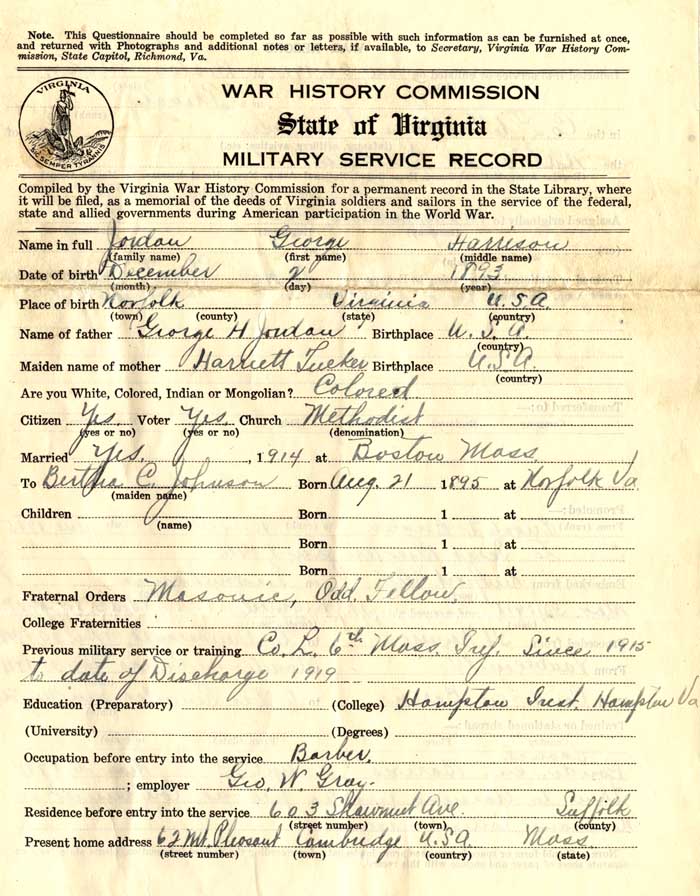 Note. This Questionnaire should be completed so far as possible with such information as can be furnished at once,
and returned with Photographs and additional notes or letters, if available, to Secretary, Virginia War History Com-
mission, State Capitol, Richmond, Va.
VIRGINIA
SIC SEMPER TYRANNIS
WAR HISTORY COMMISSION
State of Virginia
MILITARY SERVICE RECORD
Compiled by the Virginia War History Commission for a permanent record in the State Library, where
it will be filed, as a memorial of the deeds of Virginia soldiers and sailors in the service of the federal,
state and allied governments during American participation in the World War.
Name in full Jordan George Harrison
(family name) (first name) (middle name)
Date of birth December 2 1893
(month) (day) (year)
Place of birth Norfolk Virginia U.S.A.
(town) (county) (state) (country)
Name of father George H Jordan Birthplace U.S.A.
(country)
Maiden name of mother Harriett Tucker Birthplace U.S.A.
(country)
Are you White, Colored, Indian or Mongolian? Colored
Citizen Yes. Voter Yes. Church Methodist
(yes or no) (yes or no) (denomination)
Married Yes. , 1914 at Boston Mass
To Bertha C. Johnson Born Aug. 21 1895 at Norfolk Va
(maiden name)
Children Born 1 at
(name)
Born 1 at
Born 1 at
Fraternal Orders Masonic, Odd. Fellow,
College Fraternities
Previous military service or training Co. L. 6th Mass. Inf. Since 1915
to date of Discharge 1919
Education (Preparatory) (College) Hampton Inst. Hampton Va
(University) (Degrees)
Occupation before entry into the service Barber.
; employer Geo. W. Gray.
Residence before entry into the service 603 Shawmut Ave. Suffolk
(street number) (town) (county)
Present home address 62 Mt. Pleasant Cambridge USA. Mass.
(street number) (town) (country) (state)